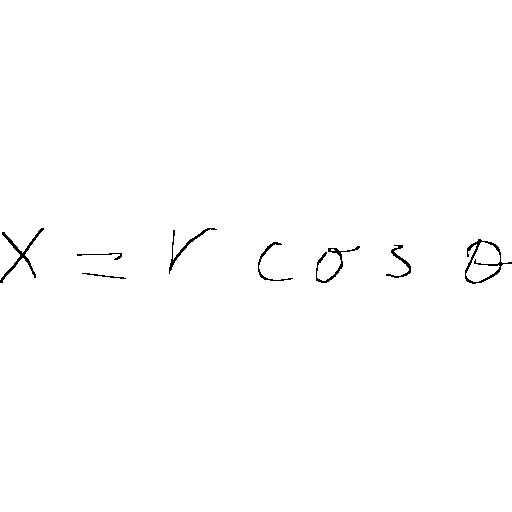 x = r cos θ